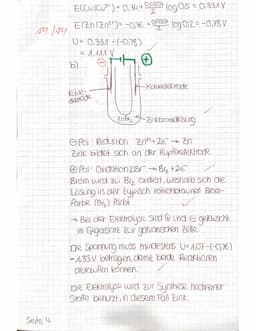 E(Cu/Cu²⁺) = 0.34 + 0.059/2 log 0.5 = 0.331V
E(Zn/Zn²⁺) = -0.76 + 0.059/2 log 0.2 = -0.78V
14/14
U = 0.331 - (-0.78)
= 1.111 V
b)
⊖ ⊕
Kohle-
elektrode
Kohleelektrode
ZnBr₂
Zinkbromidlösung
⊖ Pol: Reduktion Zn²⁺ + 2e⁻ → Zn
Zink bildet sich an der Kupferelektrode
⊕ Pol: Oxidation 2Br⁻ → Br₂ + 2e⁻
Brom wird zu Br₂ oxidiert, weshalb sich die
Lösung in der typisch rotbraunen Brom-
farbe (Br₂) färbt
→ Bei der Elektrolyse sind ⊕ und ⊖ getauscht
im Gegensatz zur galvanischen Zelle.
Die Spannung muss mindestens U = 1.07 - (-0.76)
= 1.83V betragen, damit beide Reaktionen
ablaufen können.
Die Elektrolyse wird zur Synthese hochreiner
Stoffe benutzt, in diesem Fall Zink.
Seite 4